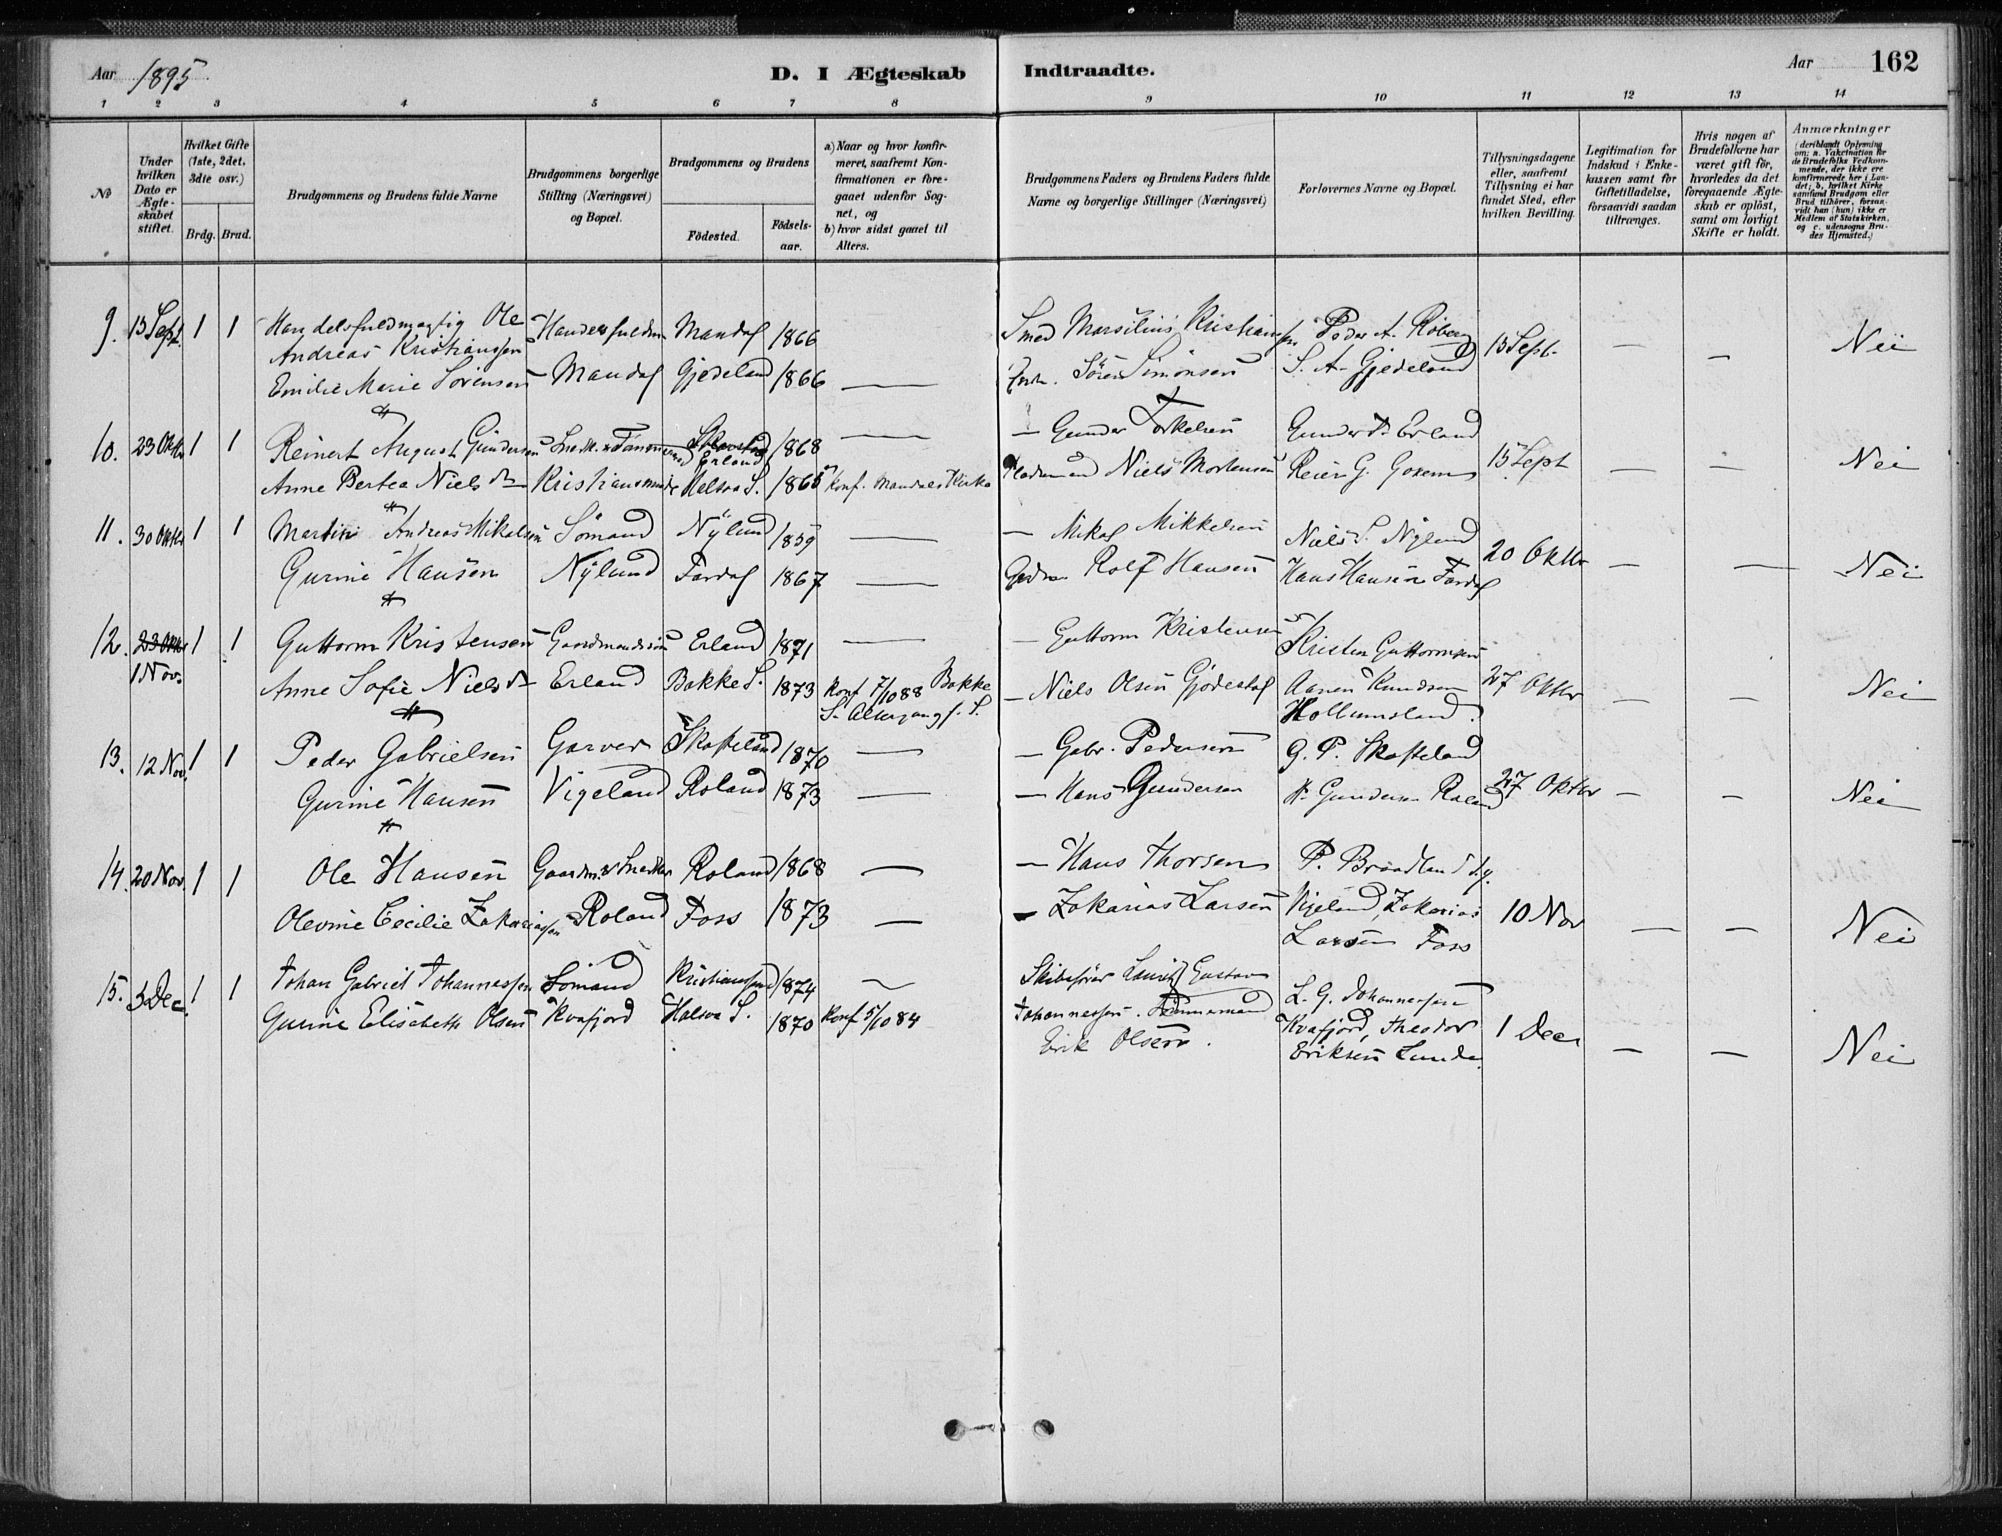 Aar 1895. D. I Ægteskab Indtraadte. Aar 162
1 2 3 4 5 6 7 8 9 10 11 12 13 14
No
Under hvilken Dato er Ægte-skabet stiftet.
Hvilket Gifte (1ste, 2det, 3die osv.)
Brdg. Brud.
Brudgommens og Brudens fulde Navne
Brudgommens borgerlige Stilling (Næringsvei) og Bopæl.
Brudgommens og Brudens
Födested.
Födsels-aar.
a) Naar og hvor konfir-meret, saafremt Kon-firmationen er fore-gaaet udenfor Sog-net, og
b) hvor sidst gaaet til Alters.
Brudgommens Faders og Brudens Faders fulde Navne og borgerlige Stillinger (Næringsvei)
Forlovernes Navne og Bopæl.
Tillysningsdagene eller, saafremt Tillysning ei har fundet Sted, efter hvilken Bevilling.
Legitimation for Indskud i Enke-kassen samt for Giftetilladelse, forsaavidt saadan tiltrænges.
Hvis nogen af Brudefolkene har været gift för, hvorledes da det foregaaende Ægte-skab er oplöst, samt om lovligt Skifte er holdt.
Anmærkninger (deriblandt Oplysning om: a. Vakcination for de Brudefolks Vedkom-mende, der ikke ere konfirmerede her i Lan-det; b. hvilket Kirke-samfund Brudgom eller Brud tilhörer, forsaa-vidt han (hun) ikke er Medlem af Statskirken, og c. udensogns Bru-des Hjemsted.)
9. 13 Sept. 1 1 Handelsfuldmægtig Ole Handelsfuldm Mandal 1866 Smed Marsilius Kristiansen Peder A. Röberg 15 Sept. — — Nei
Andreas Kristianssen
Emilie Marie Sörensen Mandal Gjedeland 1866 — Sören Simonsen S. A. Gjedeland
10. 23 Oktbr 1 1 Reinert August Gundersen Erland 1868 — — Gunder Torkelsen Gunder T. Erland 15 Sept — — Nei
Anne Bertea Nielsdtr Kristiansund Halsaa S. 1865 Konf. Mandals Kirke Niels Mortensen Reier G.
11. 30 Oktbr 1 1 Martin Andreas Mikalsen Sömand Nÿlund 1859 — — Mikal Mikkelsen Niels S. Nÿlund 20 Oktbr — — Nei
Gurine Hansen Nÿlund Fardal 1867 — Rolf Hansen Hans Hansen Fardal
12. 23 Oktbr 1 1 Guttorm Kristensen Gaardmandssön Erland 1871 — — Guttorm Kristensen Kristen Guttormsen
1 Nov. Anne Sofie Nielsdtr Erland Bakke S. 1873 Konf 7/10 88 Bakke — Niels Olsen Gjödestol Aanen Knudsen 27 Oktbr — — Nei
S. Altergang f. S. Hollumsland.
13. 12 Nov. 1 1 Peder Gabrielsen Garver Skofteland 1870 — — Gabr. Pedersen G. P. Skofteland
Gurine Hansen Vigeland Roland 1873 — — Hans Gundersen H. Gundersen Roland 27 Oktbr — — Nei
14. 20 Nov. 1 1 Ole Hansen Gaardm. & Snedker Roland 1868 — — Hans Thorsen P. Braadland
Olevine Cecilie Zakariassen Roland Foss 1873 — — Zakarias Larsen Vigeland, Zakarias 10 Nov — — Nei
Larsen Foss
15. 3 Dec. 1 1 Johan Gabriel Johannessen Sömand Kristianssand 1874 — Skibsförer Lauritz Gustav L. G. Johannessen
Gurine Elisabeth Olsen Kvafjord Halsaa S. 1870 Konf 5/10 84 Johannessen. Tömmermand Kvafjord, Theodor 1 Dec — — Nei
Erik Olsen. Eriksen Lunde.